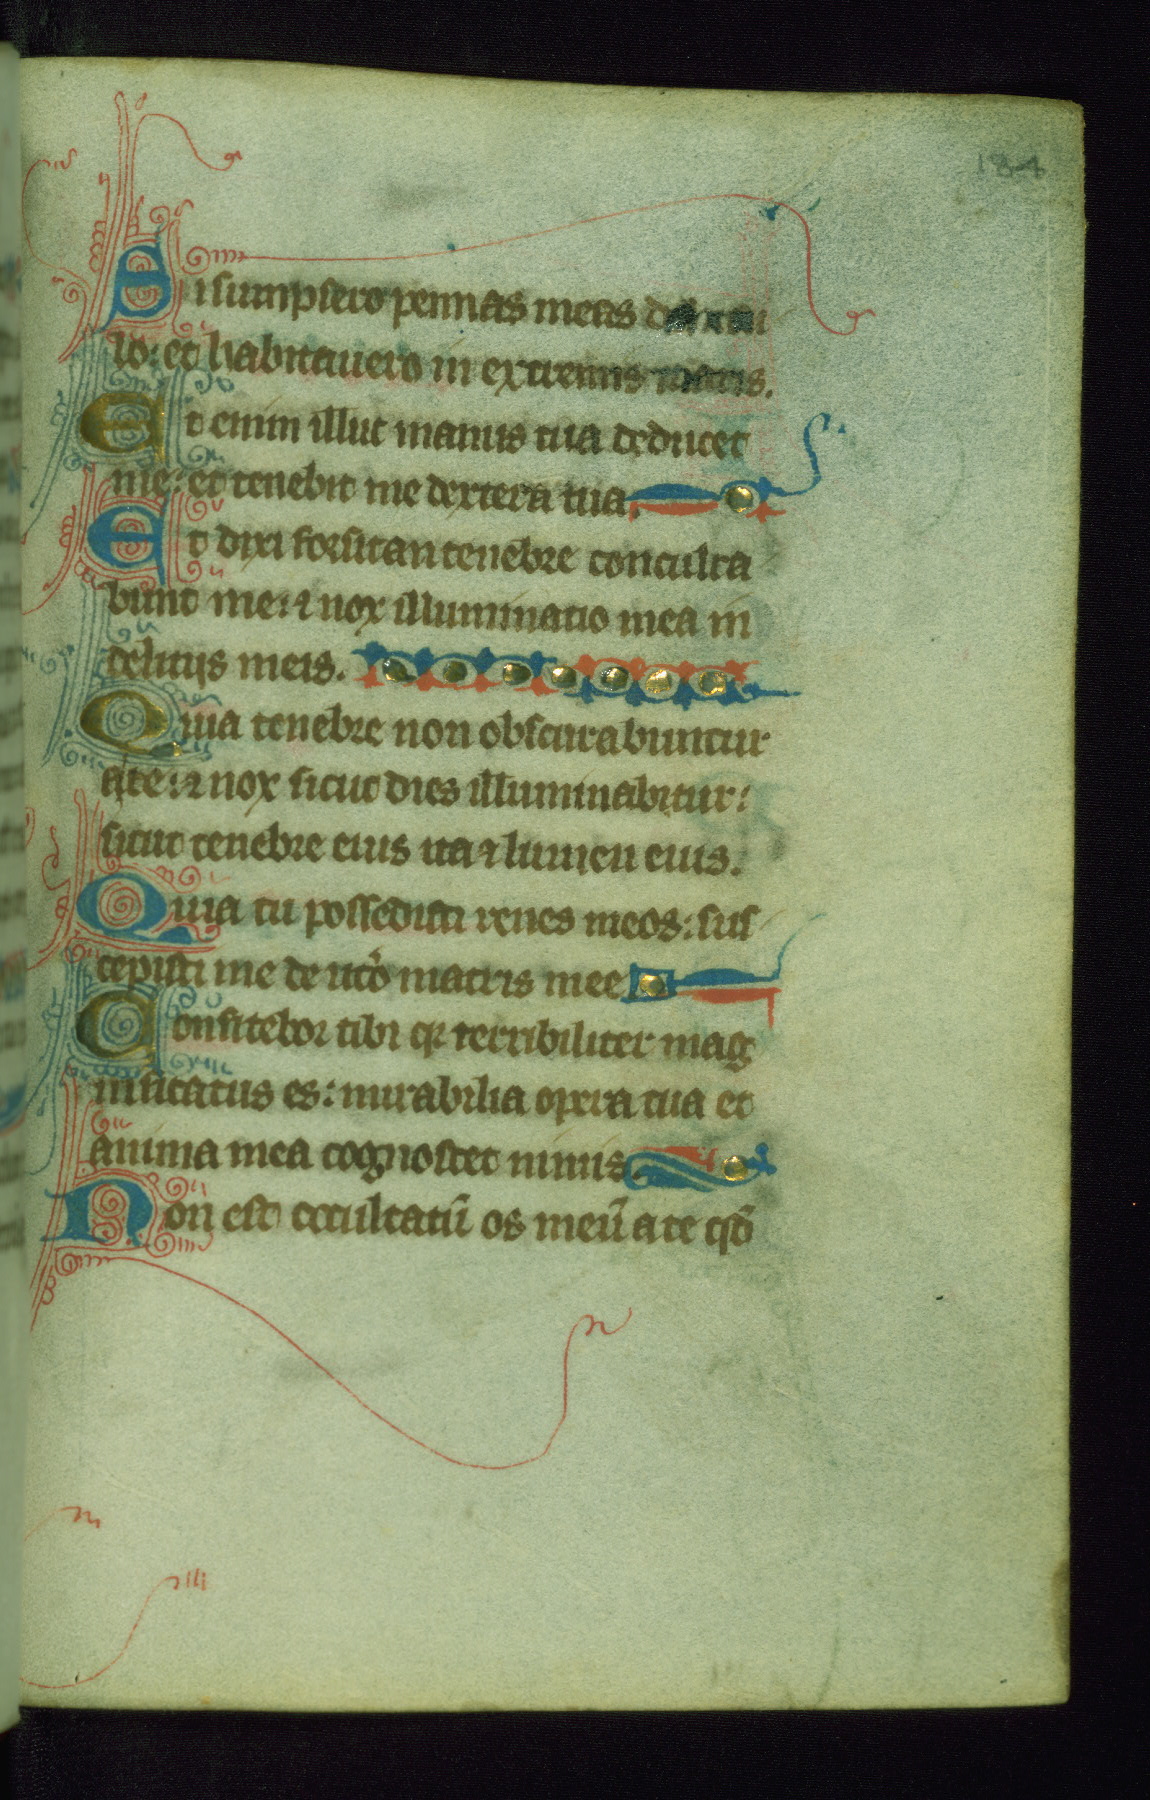 184
Si sumpsero pennas meas dilicu
lo: et habitauero in extremis maris.
Et enim illuc manus tua deducet
me: et tenebit me dextera tua.
Et dixi forsitan tenebre conculca
bunt me: ⁊ nox illuminatio mea in
delitijs meis.
Quia tenebre non obscurabuntur
a te: ⁊ nox sicut dies illuminabitur:
sicut tenebre eius ita ⁊ lumen eius.
Quia tu possedisti renes meos: sus
cepisti me de utō matris mee
Confitebor tibi qꝛ terribiliter mag
nificatus es: mirabilia opera tua et
anima mea cognoscet nimis.
Non est occultatū os meū a te qđ